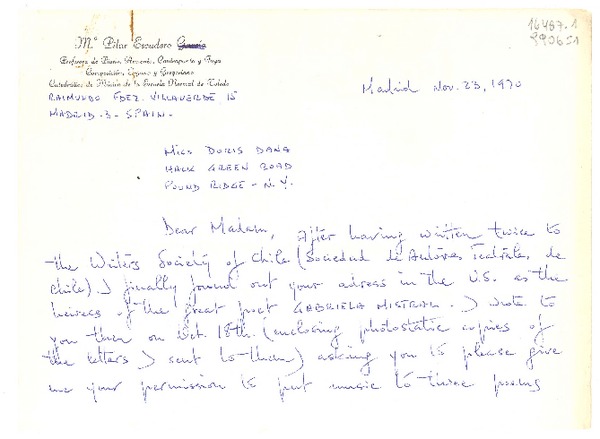 16487.1
990651
Mª Pilar Escudero García
Profesora de Piano, Armonía, Contrapunto y Fuga
Composición, Organo y Gregoriano
Catedrático de Música de la Escuela Normal de Toledo
RAIMUNDO FDEZ. VILLAVERDE 15
MADRID-3- SPAIN-
Madrid Nov. 23, 1970
MISS DORIS DANA
HACK GREEN ROAD
POUND RIDGE - N.Y.
Dear Madam, After having written twice to
the Writers Society of Chile (Sociedad de Autores Teatrales, de
Chile). I finally found out your adress in the U.S. as the
heiress of the great poet GABRIELA MISTRAL. I wrote to
you then on Oct. 18th. (enclosing photostatic copies of
the letters I sent to them) asking you to please give
me your permission to put music to three poems